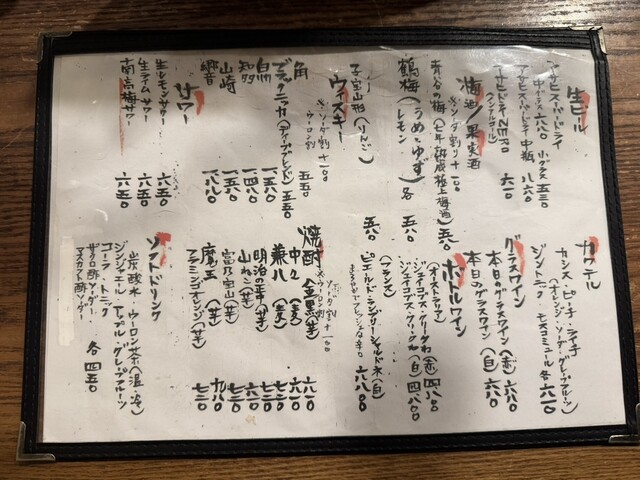 生ビール
アサヒスーパードライ
中ジョッキ 六八〇 小グラス 五三〇
アサヒスーパードライ 中瓶 八六〇
アサヒドライZERO 六二〇
(ノンアルコール)
梅酒/果実酒
※ソーダ割り+一〇〇
青谷の梅(七年熟成極上梅酒) 五八〇
鶴梅(うめとゆず) 各 五八〇
レモン
子宝山形(りんご) 五八〇
ウィスキー
※ソーダ割+一〇〇
ウーロン割
角 五五〇
ブラックニッカ(ディープブレンド) 五五〇
白州
知多
山崎
響
サワー
生レモンサワー 六五〇
生ライムサワー 六五〇
南高梅サワー 六五〇
カクテル
カシス・ピーチ・ライチ
(オレンジ・ソーダ・グレープフルーツ)
ジントニック モスコミュール 各 六二〇
グラスワイン
本日のグラスワイン(赤) 六八〇
本日のグラスワイン(白) 六八〇
ボトルワイン
(オーストラリア)
ジェイコブス・クリークわ(赤) 四八〇〇
ジェイコブス・クリークわ(白) 四八〇〇
(フランス)
(白) 六八〇〇
焼酎
ソーダ割+一〇〇
金黒(芋) 六六〇
中々(麦) 六六〇
兼八(麦) 七二〇
明治の正中(芋) 七二〇
山ねこ(芋) 七二〇
富乃宝山(芋) 七二〇
魔王(芋) 九八〇
フラミンゴオレンジ(芋) 七二〇
ソフトドリンク
炭酸水・ウーロン茶(温・冷)
ジンジャエール・アップル・グレープフルーツ
コーラ・トニック
ザクロ酢ソーダー
マスカット酢ソーダー 各 四五〇